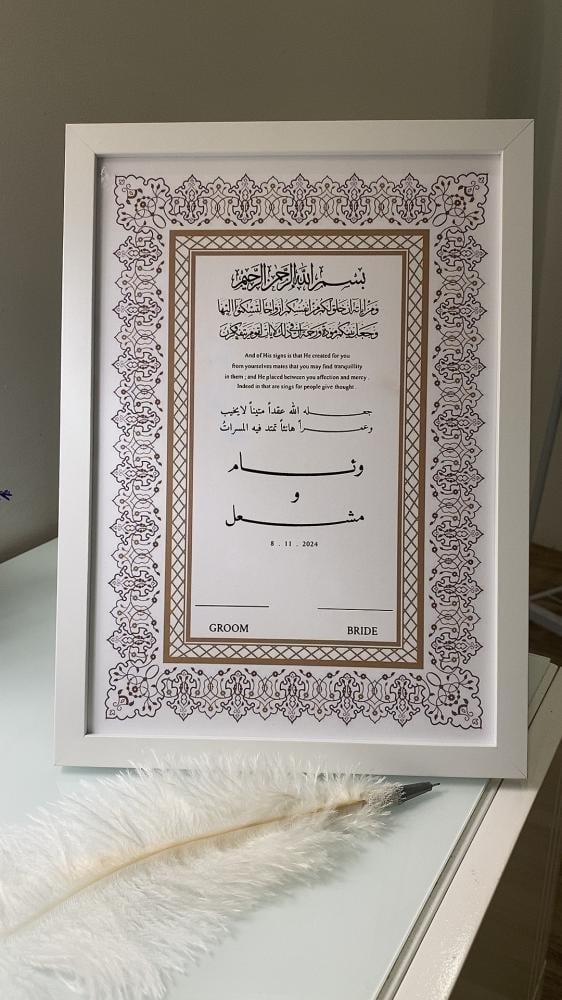 بسم الله الرحمن الرحيم
ومن آياته أن خلق لكم من أنفسكم أزواجا لتسكنوا إليها
وجعل بينكم مودة ورحمة إن في ذلك لآيات لقوم يتفكرون
And of His signs is that He created for you
from yourselves mates that you may find tranquillity
in them ; and He placed between you affection and mercy .
Indeed in that are sings for people give thought .
جعله الله عقداً متيناً لايخيب
وعمراً هانئاً تمتد فيه المسراتُ
وئام
و
مشعل
8 . 11 . 2024
GROOM BRIDE